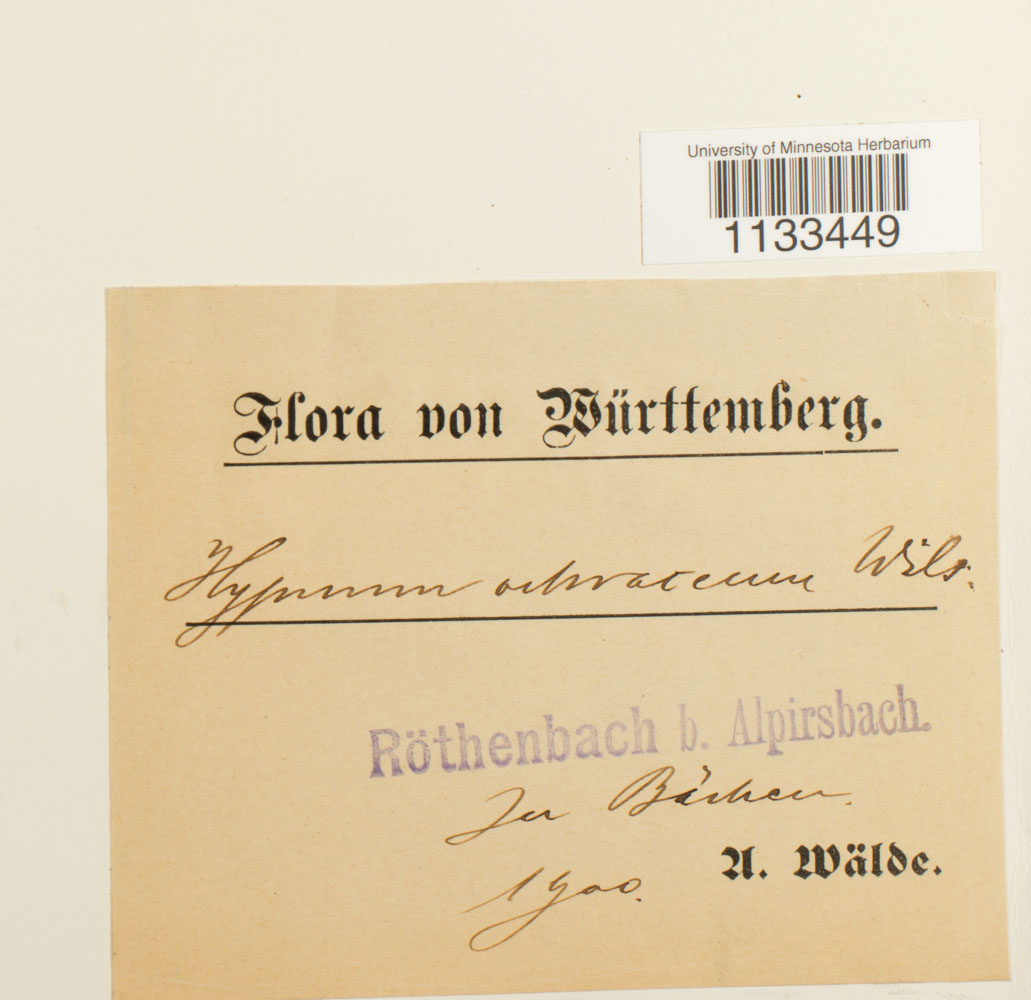 University of Minnesota Herbarium
1133449
Flora von Württemberg.
Hypnum ochraceum Wils.
Röthenbach b. Alpirsbach.
In Bächen.
1900.
A. Wälde.